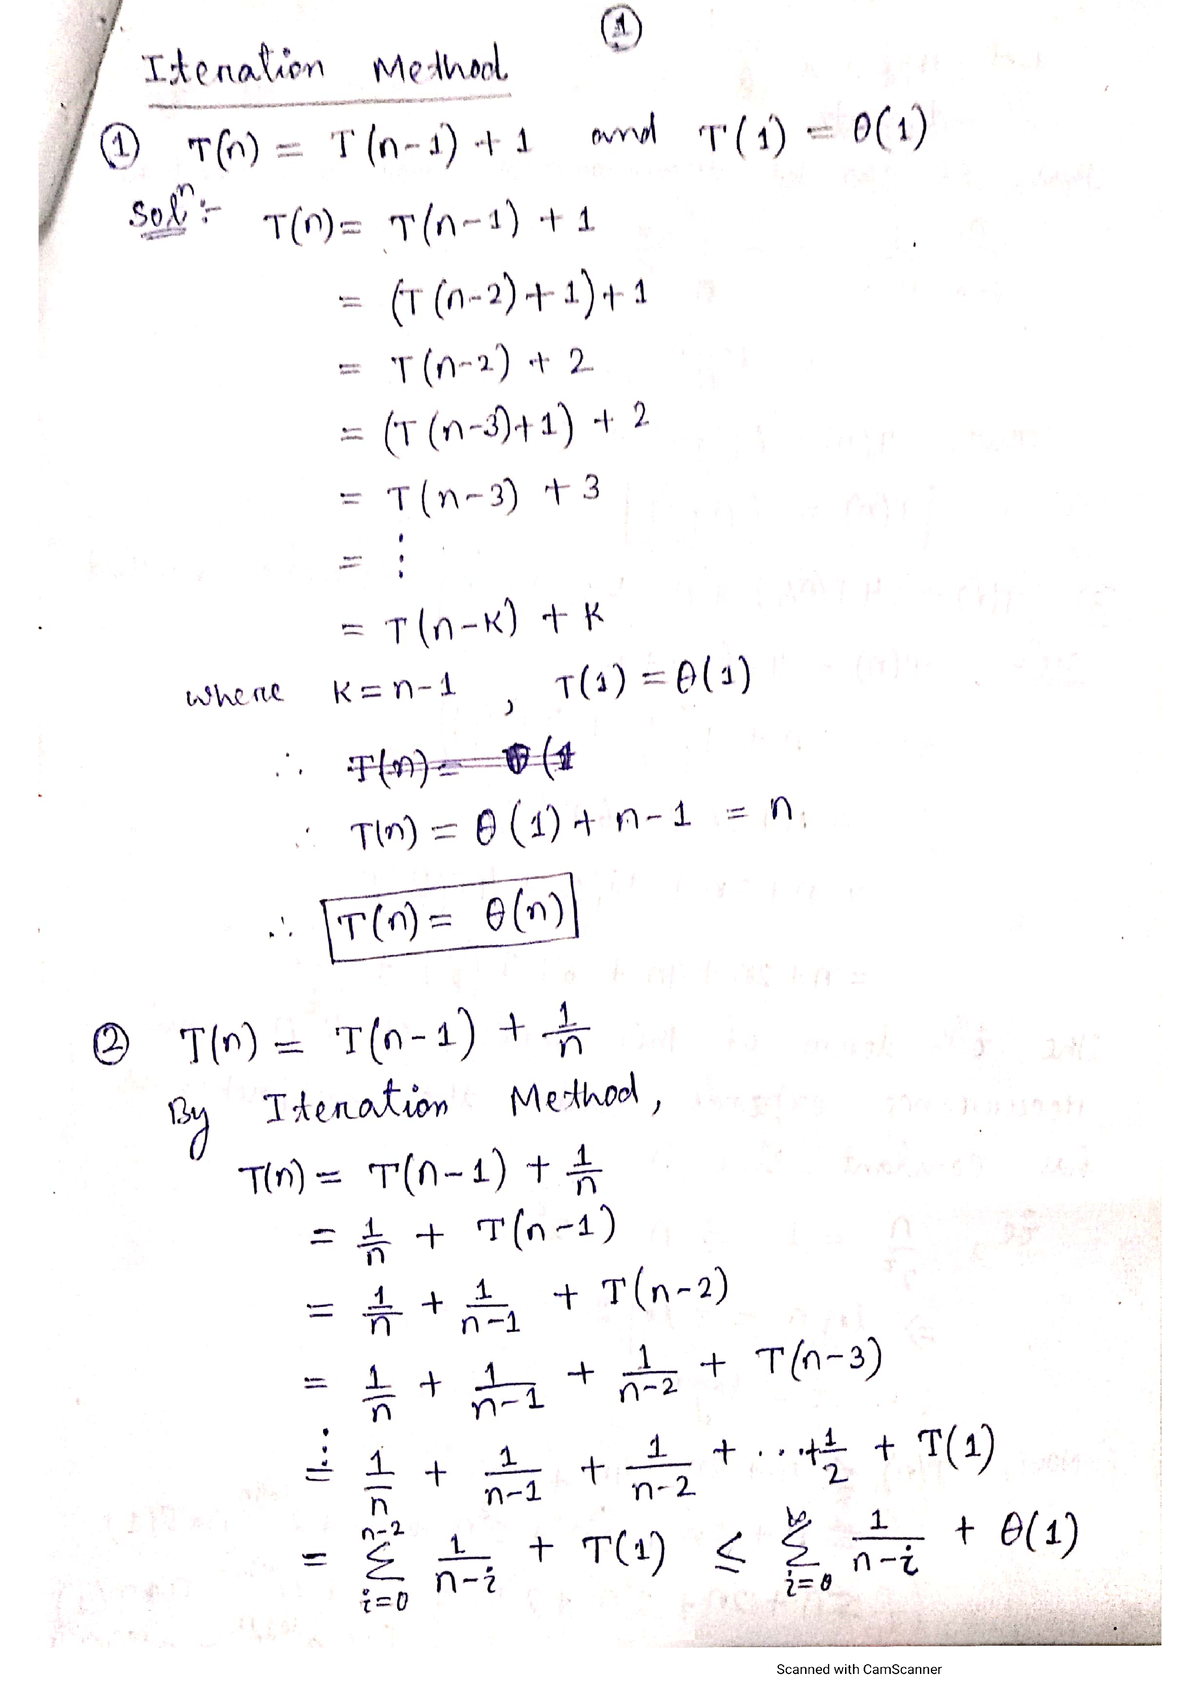 ①
Iteration Method
① T(n) = T(n-1) + 1 and T(1) = θ(1)
Solⁿ:- T(n) = T(n-1) + 1
= (T(n-2)+1)+1
= T(n-2) + 2
= (T(n-3)+1) + 2
= T(n-3) + 3
= ⋮
= T(n-K) + K
where K = n-1 , T(1) = θ(1)
∴ T(n) = θ(1
∴ T(n) = θ(1) + n-1 = n.
∴ T(n) = θ(n)
② T(n) = T(n-1) + 1/n
By Iteration Method,
T(n) = T(n-1) + 1/n
= 1/n + T(n-1)
= 1/n + 1/(n-1) + T(n-2)
= 1/n + 1/(n-1) + 1/(n-2) + T(n-3)
⋮
= 1/n + 1/(n-1) + 1/(n-2) + ... + 1/2 + T(1)
= Σ_{i=0}^{n-2} 1/(n-i) + T(1) ≤ Σ_{i=0}^{∞} 1/(n-i) + θ(1)
Scanned with CamScanner